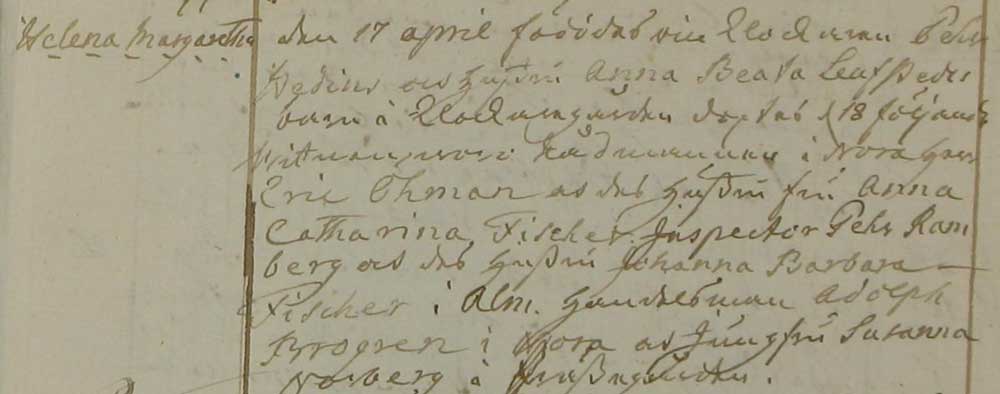 Helena Margaretha den 17 april föddes Klockaren Pehr
Hedins och Hustru Anna Beata Leufstedts
barn i Klockaregården döptes d 18 följande
Wittnen woro Rådmannen i Nora Herr
Eric Öhman och des Hustru fru Anna
Catharina Fischer. Inspector Pehr Ram
berg och des Hustru Johanna Barbara
Fischer i Alm. Handelsman Adolph
Brogren i Nora och Jungfru Susanna
Norberg i